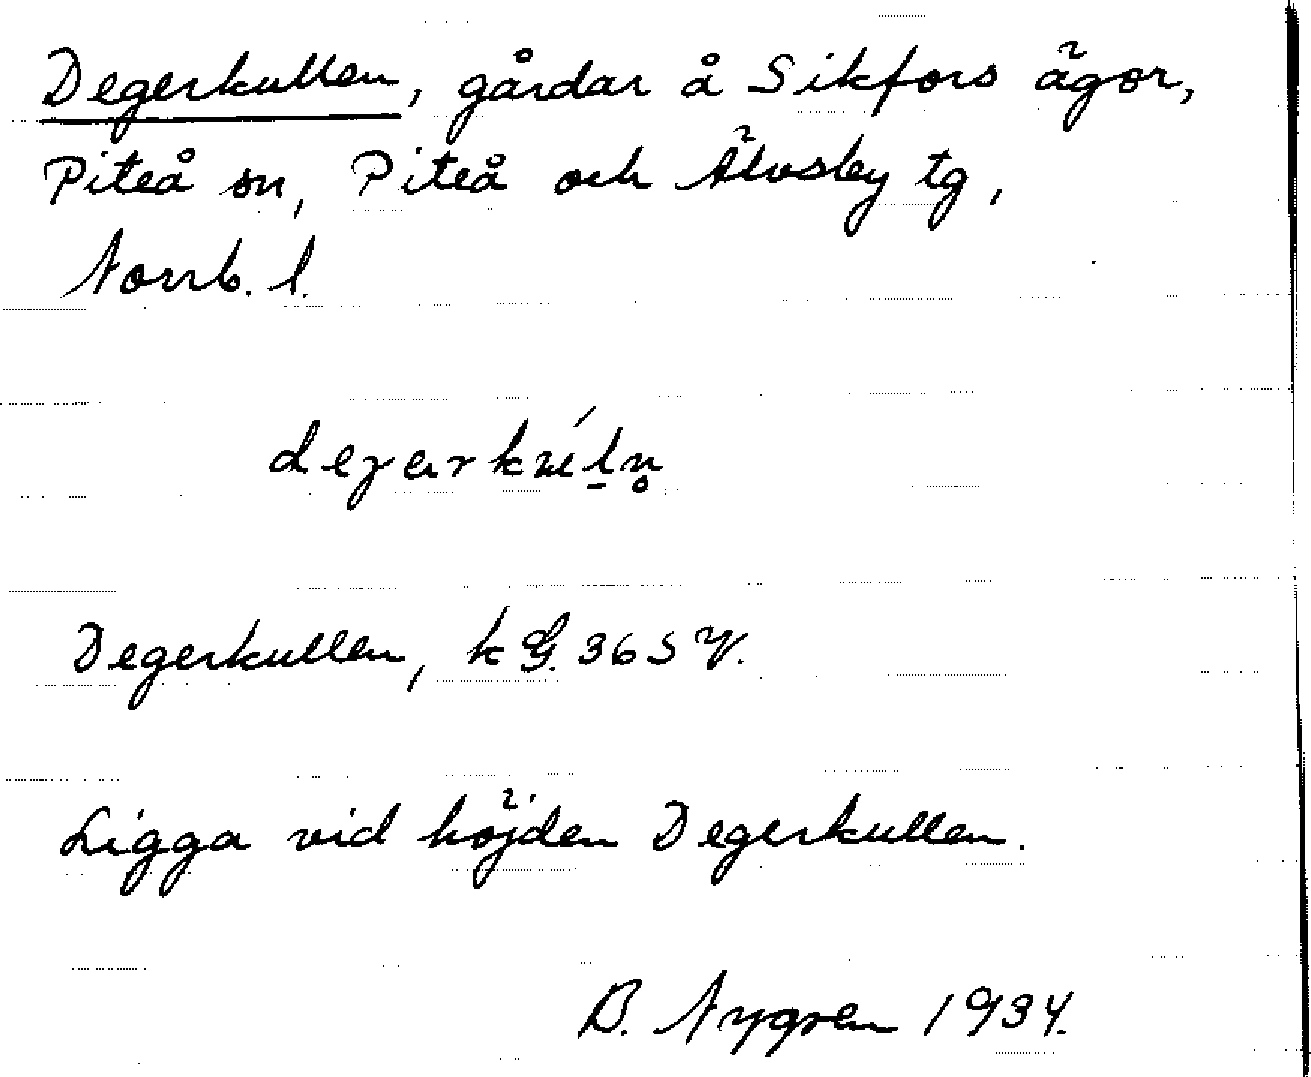 Degerkullen, gårdar å Sikfors ägor,
Piteå sn, Piteå och Älvsby tg,
Norrb. l.
Degerkullen, kG. 365 V.
Ligga vid höjden Degerkullen.
B. Nygren 1934.